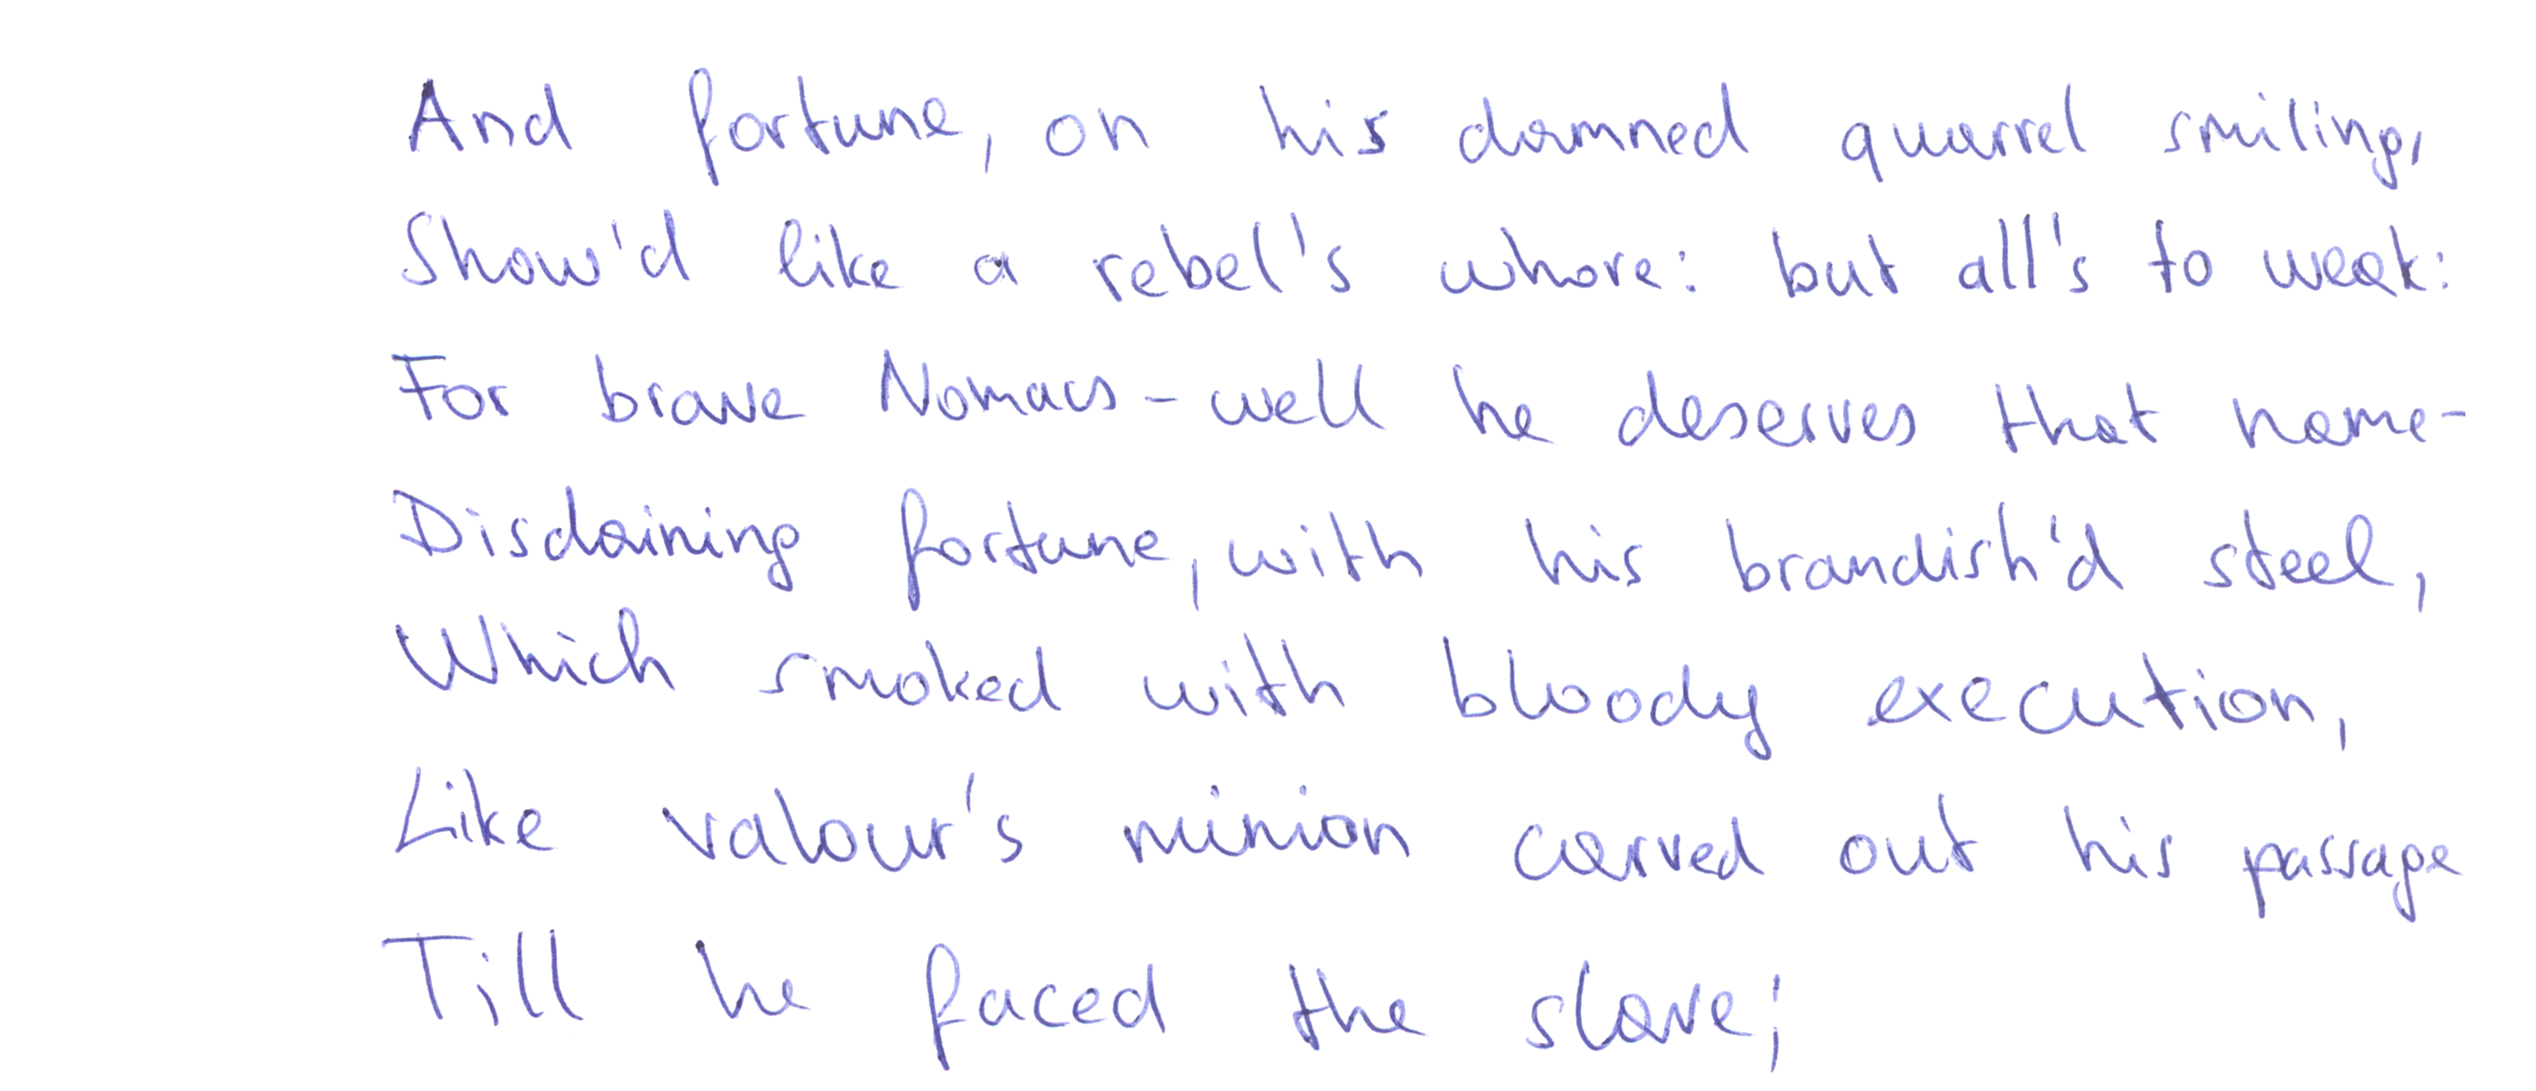 And fortune, on his damned quarrel smiling,
Show'd like a rebel's whore: but all's to weak:
For brave Nomacs - well he deserves that name-
Disdaining fortune, with his brandish'd steel,
Which smoked with bloody execution,
Like valour's minion carved out his passage
Till he faced the slave;